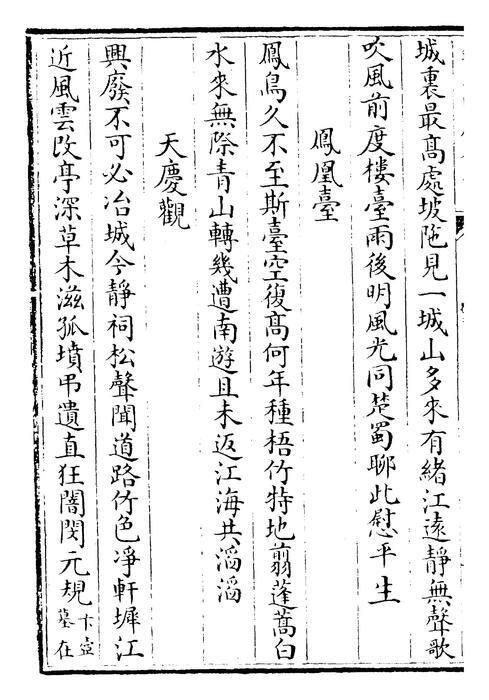 城裏最髙處坡陁見一城山多來有緒江遠靜無聲歌
吹風前度樓臺雨後明風光同楚蜀聊此慰平生
鳳凰臺
鳳鳥久不至斯臺空復髙何年種梧竹特地翦蓬蒿白
水來無際青山轉幾遭南遊且未返江海共滔滔
天慶觀
興廢不可必冶城今靜祠松聲聞道路竹色淨軒墀江
近風雲改亭深草木滋孤墳弔遺直狂闇閔元規卞壼
墓在